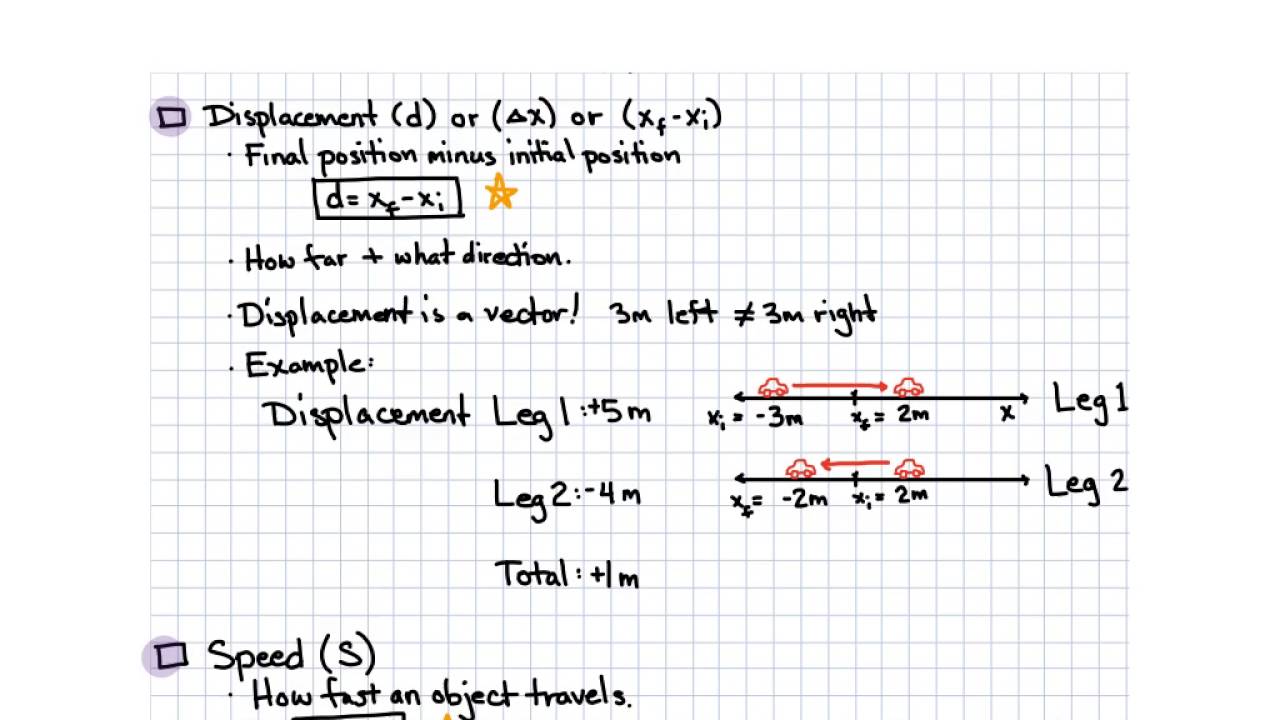 Displacement (d) or (Δx) or (xf-xi)
· Final position minus initial position
d= xf-xi
· How far + what direction.
· Displacement is a vector! 3m left ≠ 3m right
· Example:
Displacement Leg 1:+5m
xi = -3m xf = 2m x Leg 1
Leg 2:-4m
xf= -2m xi= 2m Leg 2
Total: +1m
Speed (S)
· How fast an object travels.